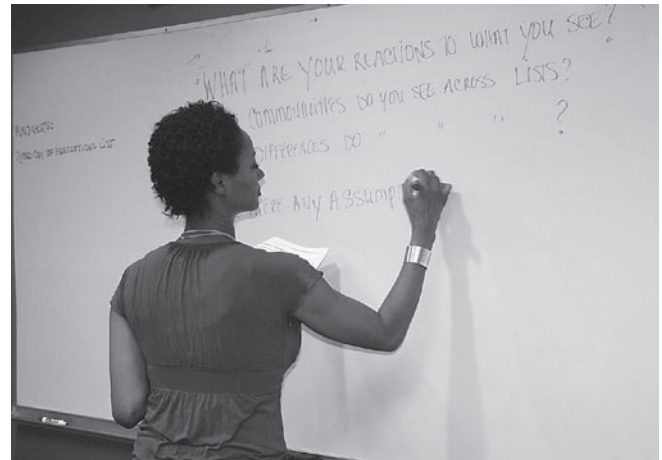 "WHAT ARE YOUR REACTIONS TO WHAT YOU SEE?
COMMONALITIES DO YOU SEE ACROSS LISTS?
DIFFERENCES DO " " " ?
ERE ANY ASSUMP
OF PERCEPTIONS LIST